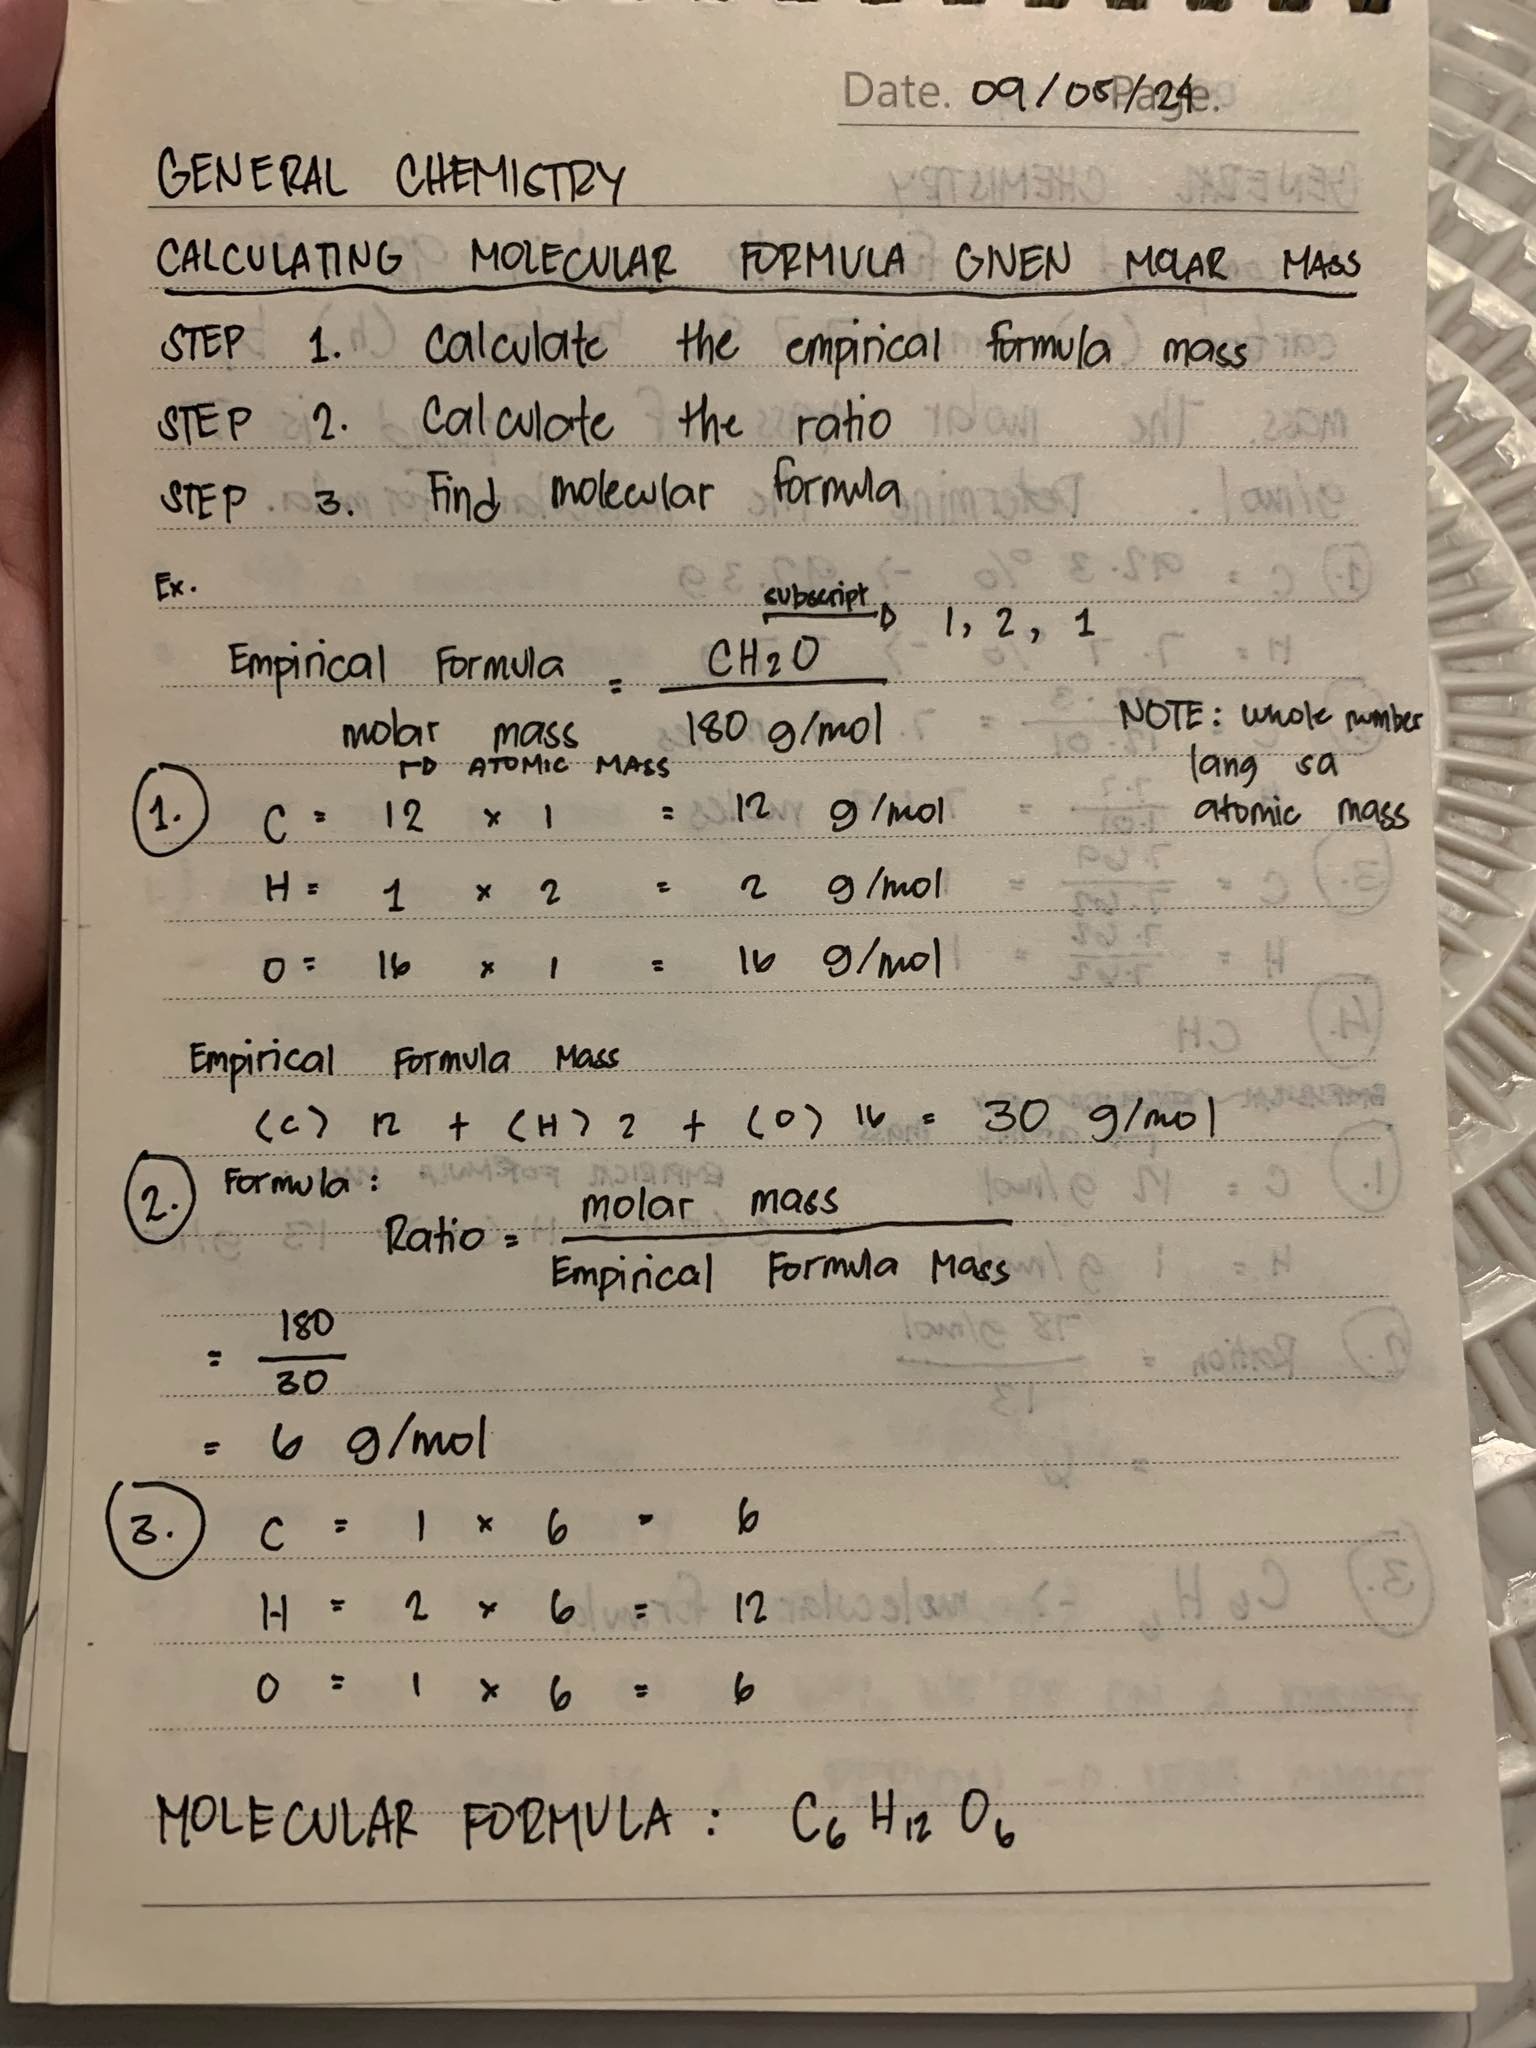 Date. 09/05/24 Page.
GENERAL CHEMISTRY
CALCULATING MOLECULAR FORMULA GIVEN MOLAR MASS
STEP 1. Calculate the empirical formula mass
STEP 2. Calculate the ratio
STEP 3. Find molecular formula
Ex.
subscript → 1, 2, 1
Empirical Formula = CH2O
molar mass 180 g/mol
NOTE: whole number
lang sa
atomic mass
→ ATOMIC MASS
1. C = 12 x 1 = 12 g/mol
H = 1 x 2 = 2 g/mol
O = 16 x 1 = 16 g/mol
Empirical Formula Mass
(C) 12 + (H) 2 + (O) 16 = 30 g/mol
2. Formula:
Ratio = molar mass
Empirical Formula Mass
= 180
30
= 6 g/mol
3. C = 1 x 6 = 6
H = 2 x 6 = 12
O = 1 x 6 = 6
MOLECULAR FORMULA : C6 H12 O6